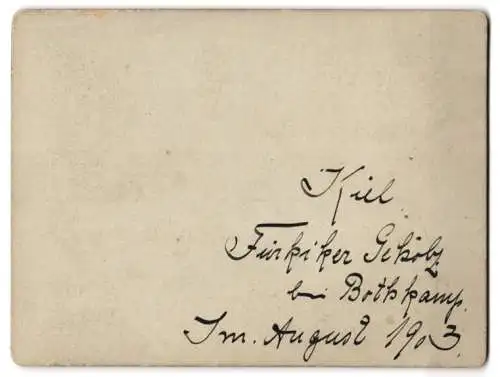 Kiel
Fürkiker Gehölz
bei Bothkamp.
Im. August 1903.